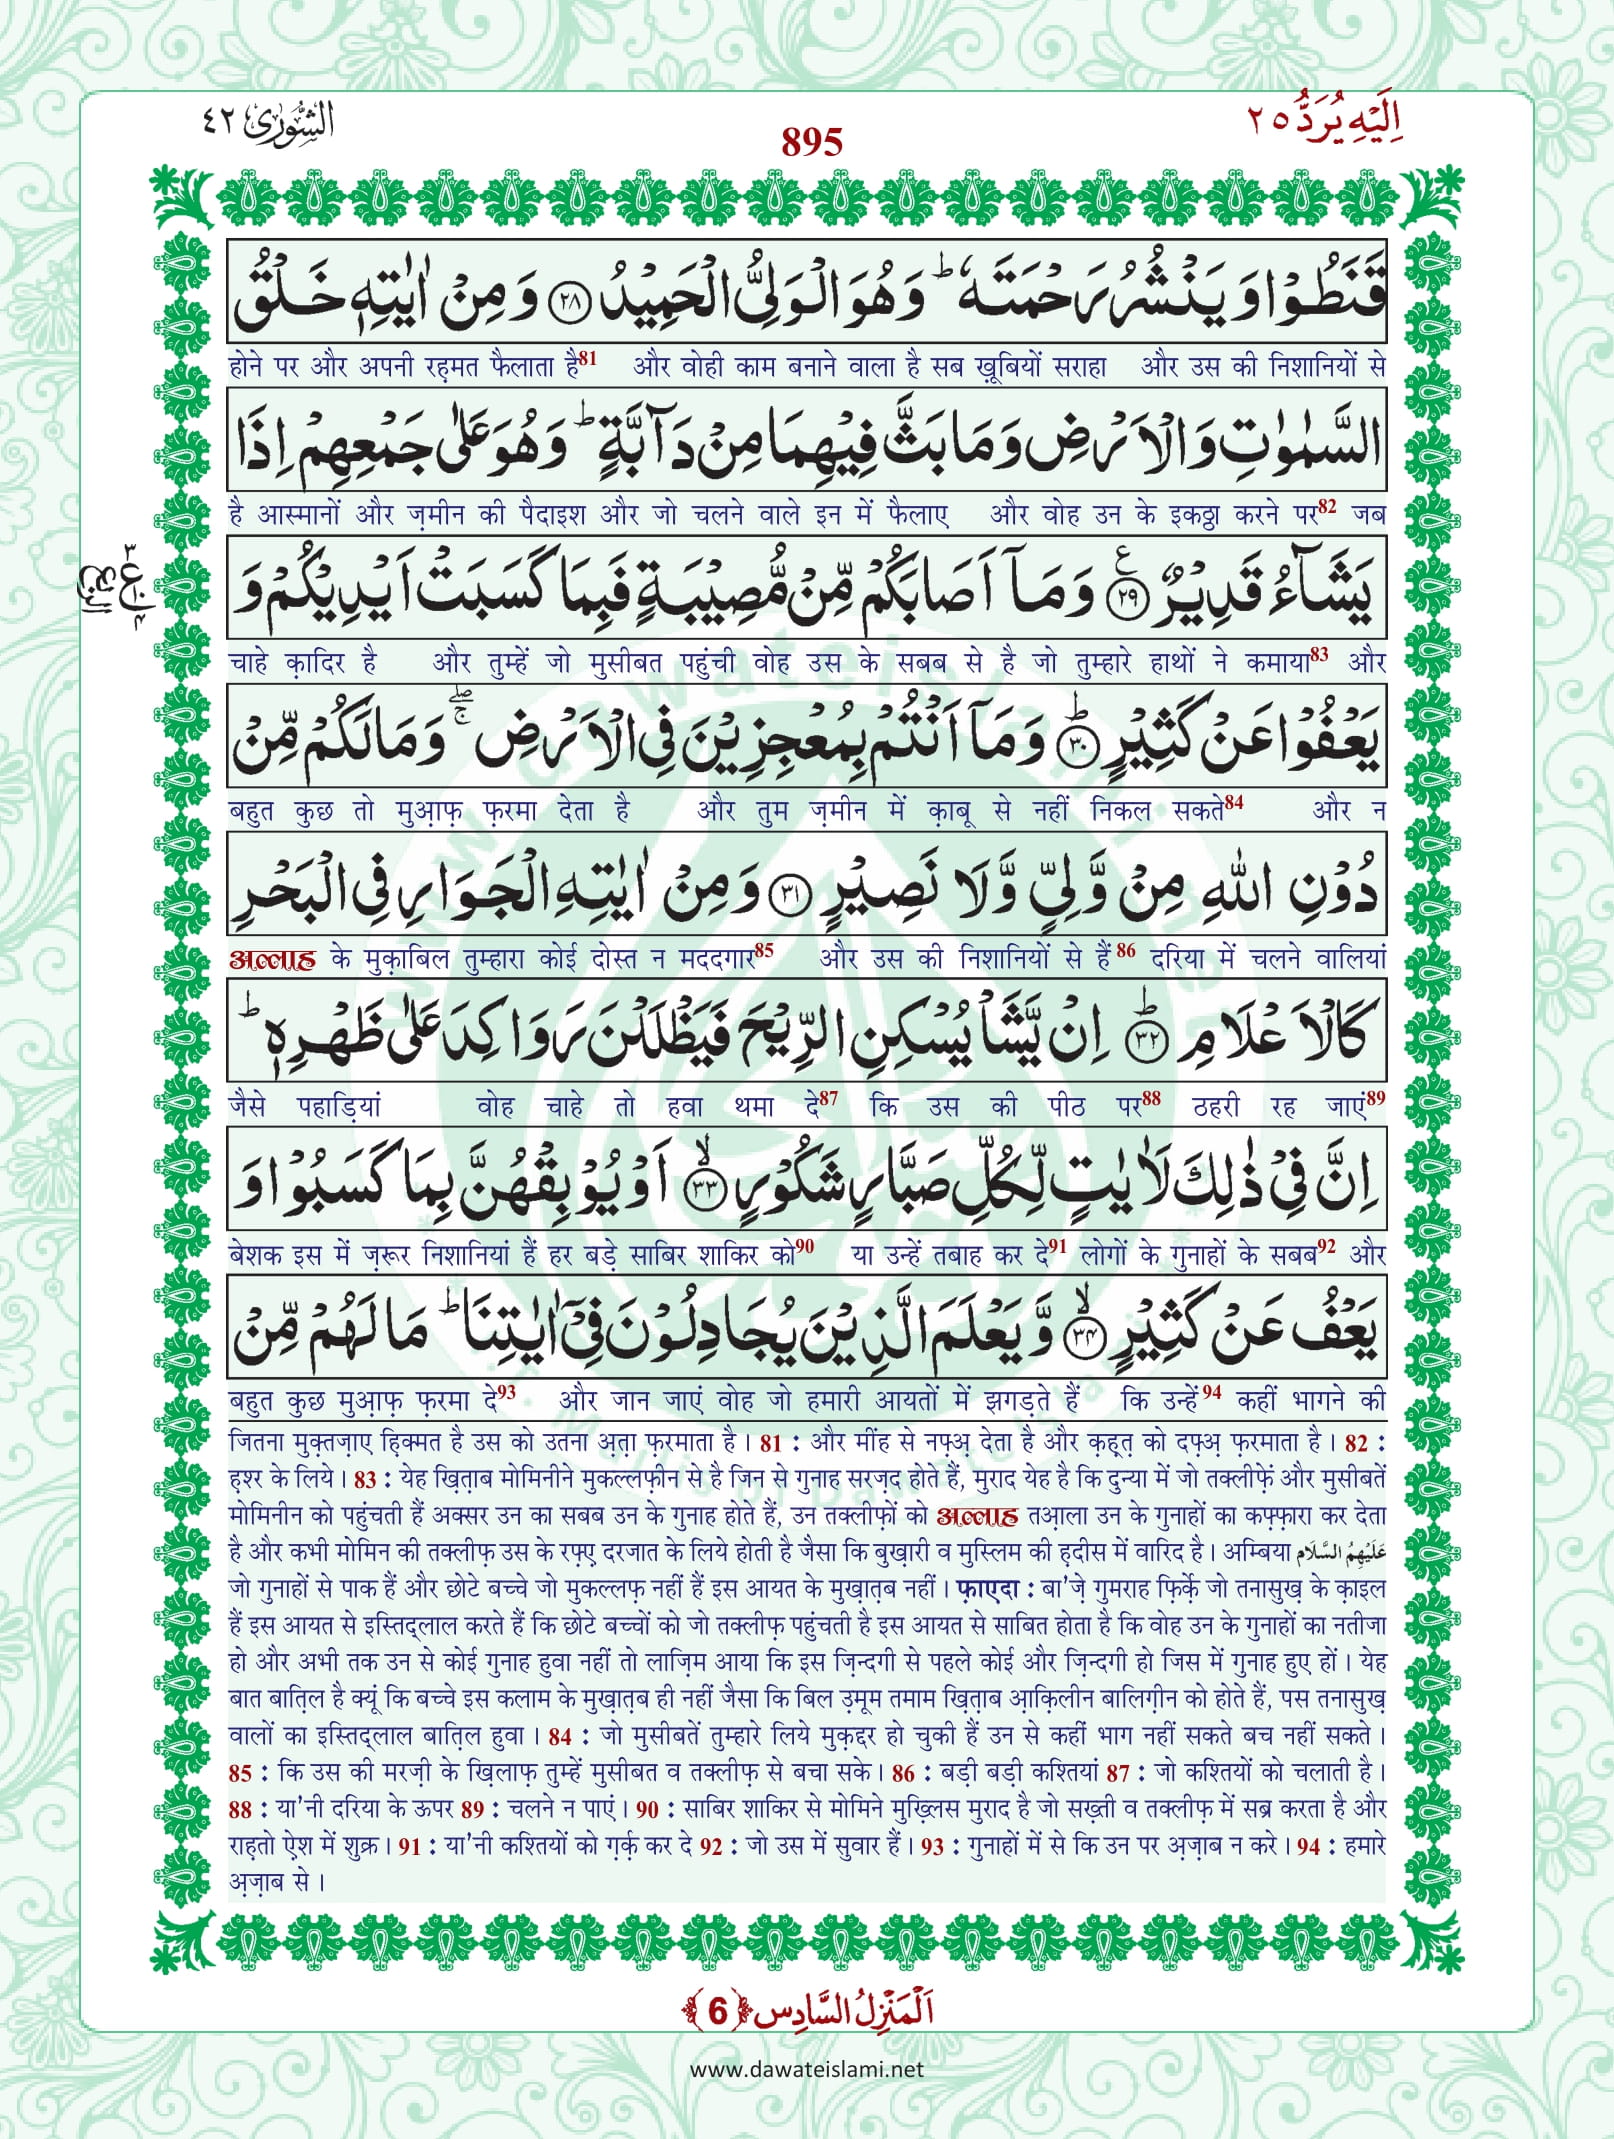 اِلَیْهِ یُرَدُّ ٢٥
895
الشُّوْرٰی ٤٢
قَنَطُوْا وَ یَنْشُرُ رَحْمَتَهٗ ؕ وَ هُوَ الْوَلِیُّ الْحَمِیْدُ ۝۲۸ وَ مِنْ اٰیٰتِهٖ خَلْقُ
होने पर और अपनी रह़मत फैलाता है81 और वोही काम बनाने वाला है सब ख़ूबियों सराहा और उस की निशानियों से
السَّمٰوٰتِ وَ الْاَرْضِ وَ مَا بَثَّ فِیْهِمَا مِنْ دَآبَّةٍ ؕ وَ هُوَ عَلٰی جَمْعِهِمْ اِذَا
है आस्मानों और ज़मीन की पैदाइश और जो चलने वाले इन में फैलाए और वोह उन के इकठ्ठा करने पर82 जब
یَشَآءُ قَدِیْرٌ ۝۲۹ ع وَ مَاۤ اَصَابَكُمْ مِّنْ مُّصِیْبَةٍ فَبِمَا كَسَبَتْ اَیْدِیْكُمْ وَ
चाहे क़ादिर है और तुम्हें जो मुसीबत पहुंची वोह उस के सबब से है जो तुम्हारे हाथों ने कमाया83 और
یَعْفُوْا عَنْ كَثِیْرٍ ؕ۝۳۰ وَ مَاۤ اَنْتُمْ بِمُعْجِزِیْنَ فِی الْاَرْضِ ۚۖ وَ مَا لَكُمْ مِّنْ
बहुत कुछ तो मुआ़फ़ फ़रमा देता है और तुम ज़मीन में क़ाबू से नहीं निकल सकते84 और न
دُوْنِ اللّٰهِ مِنْ وَّلِیٍّ وَّ لَا نَصِیْرٍ ۝۳۱ وَ مِنْ اٰیٰتِهِ الْجَوَارِ فِی الْبَحْرِ
अल्लाह के मुक़ाबिल तुम्हारा कोई दोस्त न मददगार85 और उस की निशानियों से हैं86 दरिया में चलने वालियां
كَالْاَعْلَامِ ؕ۝۳۲ اِنْ یَّشَاْ یُسْكِنِ الرِّیْحَ فَیَظْلَلْنَ رَوَاكِدَ عَلٰی ظَهْرِهٖ ؕ
जैसे पहाड़ियां वोह चाहे तो हवा थमा दे87 कि उस की पीठ पर88 ठहरी रह जाएं89
اِنَّ فِیْ ذٰلِكَ لَاٰیٰتٍ لِّكُلِّ صَبَّارٍ شَكُوْرٍ ۙ۝۳۳ اَوْ یُوْبِقْهُنَّ بِمَا كَسَبُوْا وَ
बेशक इस में ज़रूर निशानियां हैं हर बड़े साबिर शाकिर को90 या उन्हें तबाह कर दे91 लोगों के गुनाहों के सबब92 और
یَعْفُ عَنْ كَثِیْرٍ ۙ۝۳۴ وَّ یَعْلَمَ الَّذِیْنَ یُجَادِلُوْنَ فِیْۤ اٰیٰتِنَا ؕ مَا لَهُمْ مِّنْ
बहुत कुछ मुआ़फ़ फ़रमा दे93 और जान जाएं वोह जो हमारी आयतों में झगड़ते हैं कि उन्हें94 कहीं भागने की
जितना मुक़्तज़ाए ह़िक्मत है उस को उतना अ़त़ा फ़रमाता है। 81 : और मींह से नफ़्अ़ देता है और क़ह़त़ को दफ़्अ़ फ़रमाता है। 82 :
ह़श्र के लिये। 83 : येह ख़ित़ाब मोमिनीने मुकल्लफ़ीन से है जिन से गुनाह सरज़द होते हैं, मुराद येह है कि दुन्या में जो तक्लीफ़ें और मुसीबतें
मोमिनीन को पहुंचती हैं अक्सर उन का सबब उन के गुनाह होते हैं, उन तक्लीफ़ों को अल्लाह तआ़ला उन के गुनाहों का कफ़्फ़ारा कर देता
है और कभी मोमिन की तक्लीफ़ उस के रफ़्ए़ दरजात के लिये होती है जैसा कि बुख़ारी व मुस्लिम की ह़दीस में वारिद है। अम्बिया عَلَیْهِمُ السَّلَام
जो गुनाहों से पाक हैं और छोटे बच्चे जो मुकल्लफ़ नहीं हैं इस आयत के मुख़ात़ब नहीं। फ़ाएदा : बा'ज़े गुमराह फ़िर्क़े जो तनासुख़ के क़ाइल
हैं इस आयत से इस्तिद्लाल करते हैं कि छोटे बच्चों को जो तक्लीफ़ पहुंचती है इस आयत से साबित होता है कि वोह उन के गुनाहों का नतीजा
हो और अभी तक उन से कोई गुनाह हुवा नहीं तो लाज़िम आया कि इस ज़िन्दगी से पहले कोई और ज़िन्दगी हो जिस में गुनाह हुए हों। येह
बात बात़िल है क्यूं कि बच्चे इस कलाम के मुख़ात़ब ही नहीं जैसा कि बिल उ़मूम तमाम ख़ित़ाब आ़क़िलीन बालिग़ीन को होते हैं, पस तनासुख़
वालों का इस्तिद्लाल बात़िल हुवा। 84 : जो मुसीबतें तुम्हारे लिये मुक़द्दर हो चुकी हैं उन से कहीं भाग नहीं सकते बच नहीं सकते।
85 : कि उस की मरज़ी के ख़िलाफ़ तुम्हें मुसीबत व तक्लीफ़ से बचा सके। 86 : बड़ी बड़ी कश्तियां 87 : जो कश्तियों को चलाती है।
88 : या'नी दरिया के ऊपर 89 : चलने न पाएं। 90 : साबिर शाकिर से मोमिने मुख़्लिस मुराद है जो सख़्ती व तक्लीफ़ में सब्र करता है और
राह़तो ऐ़श में शुक्र। 91 : या'नी कश्तियों को ग़र्क़ कर दे 92 : जो उस में सुवार हैं। 93 : गुनाहों में से कि उन पर अ़ज़ाब न करे। 94 : हमारे
अ़ज़ाब से।
اَلْمَنْزِلُ السَّادِس ﴿6﴾
www.dawateislami.net